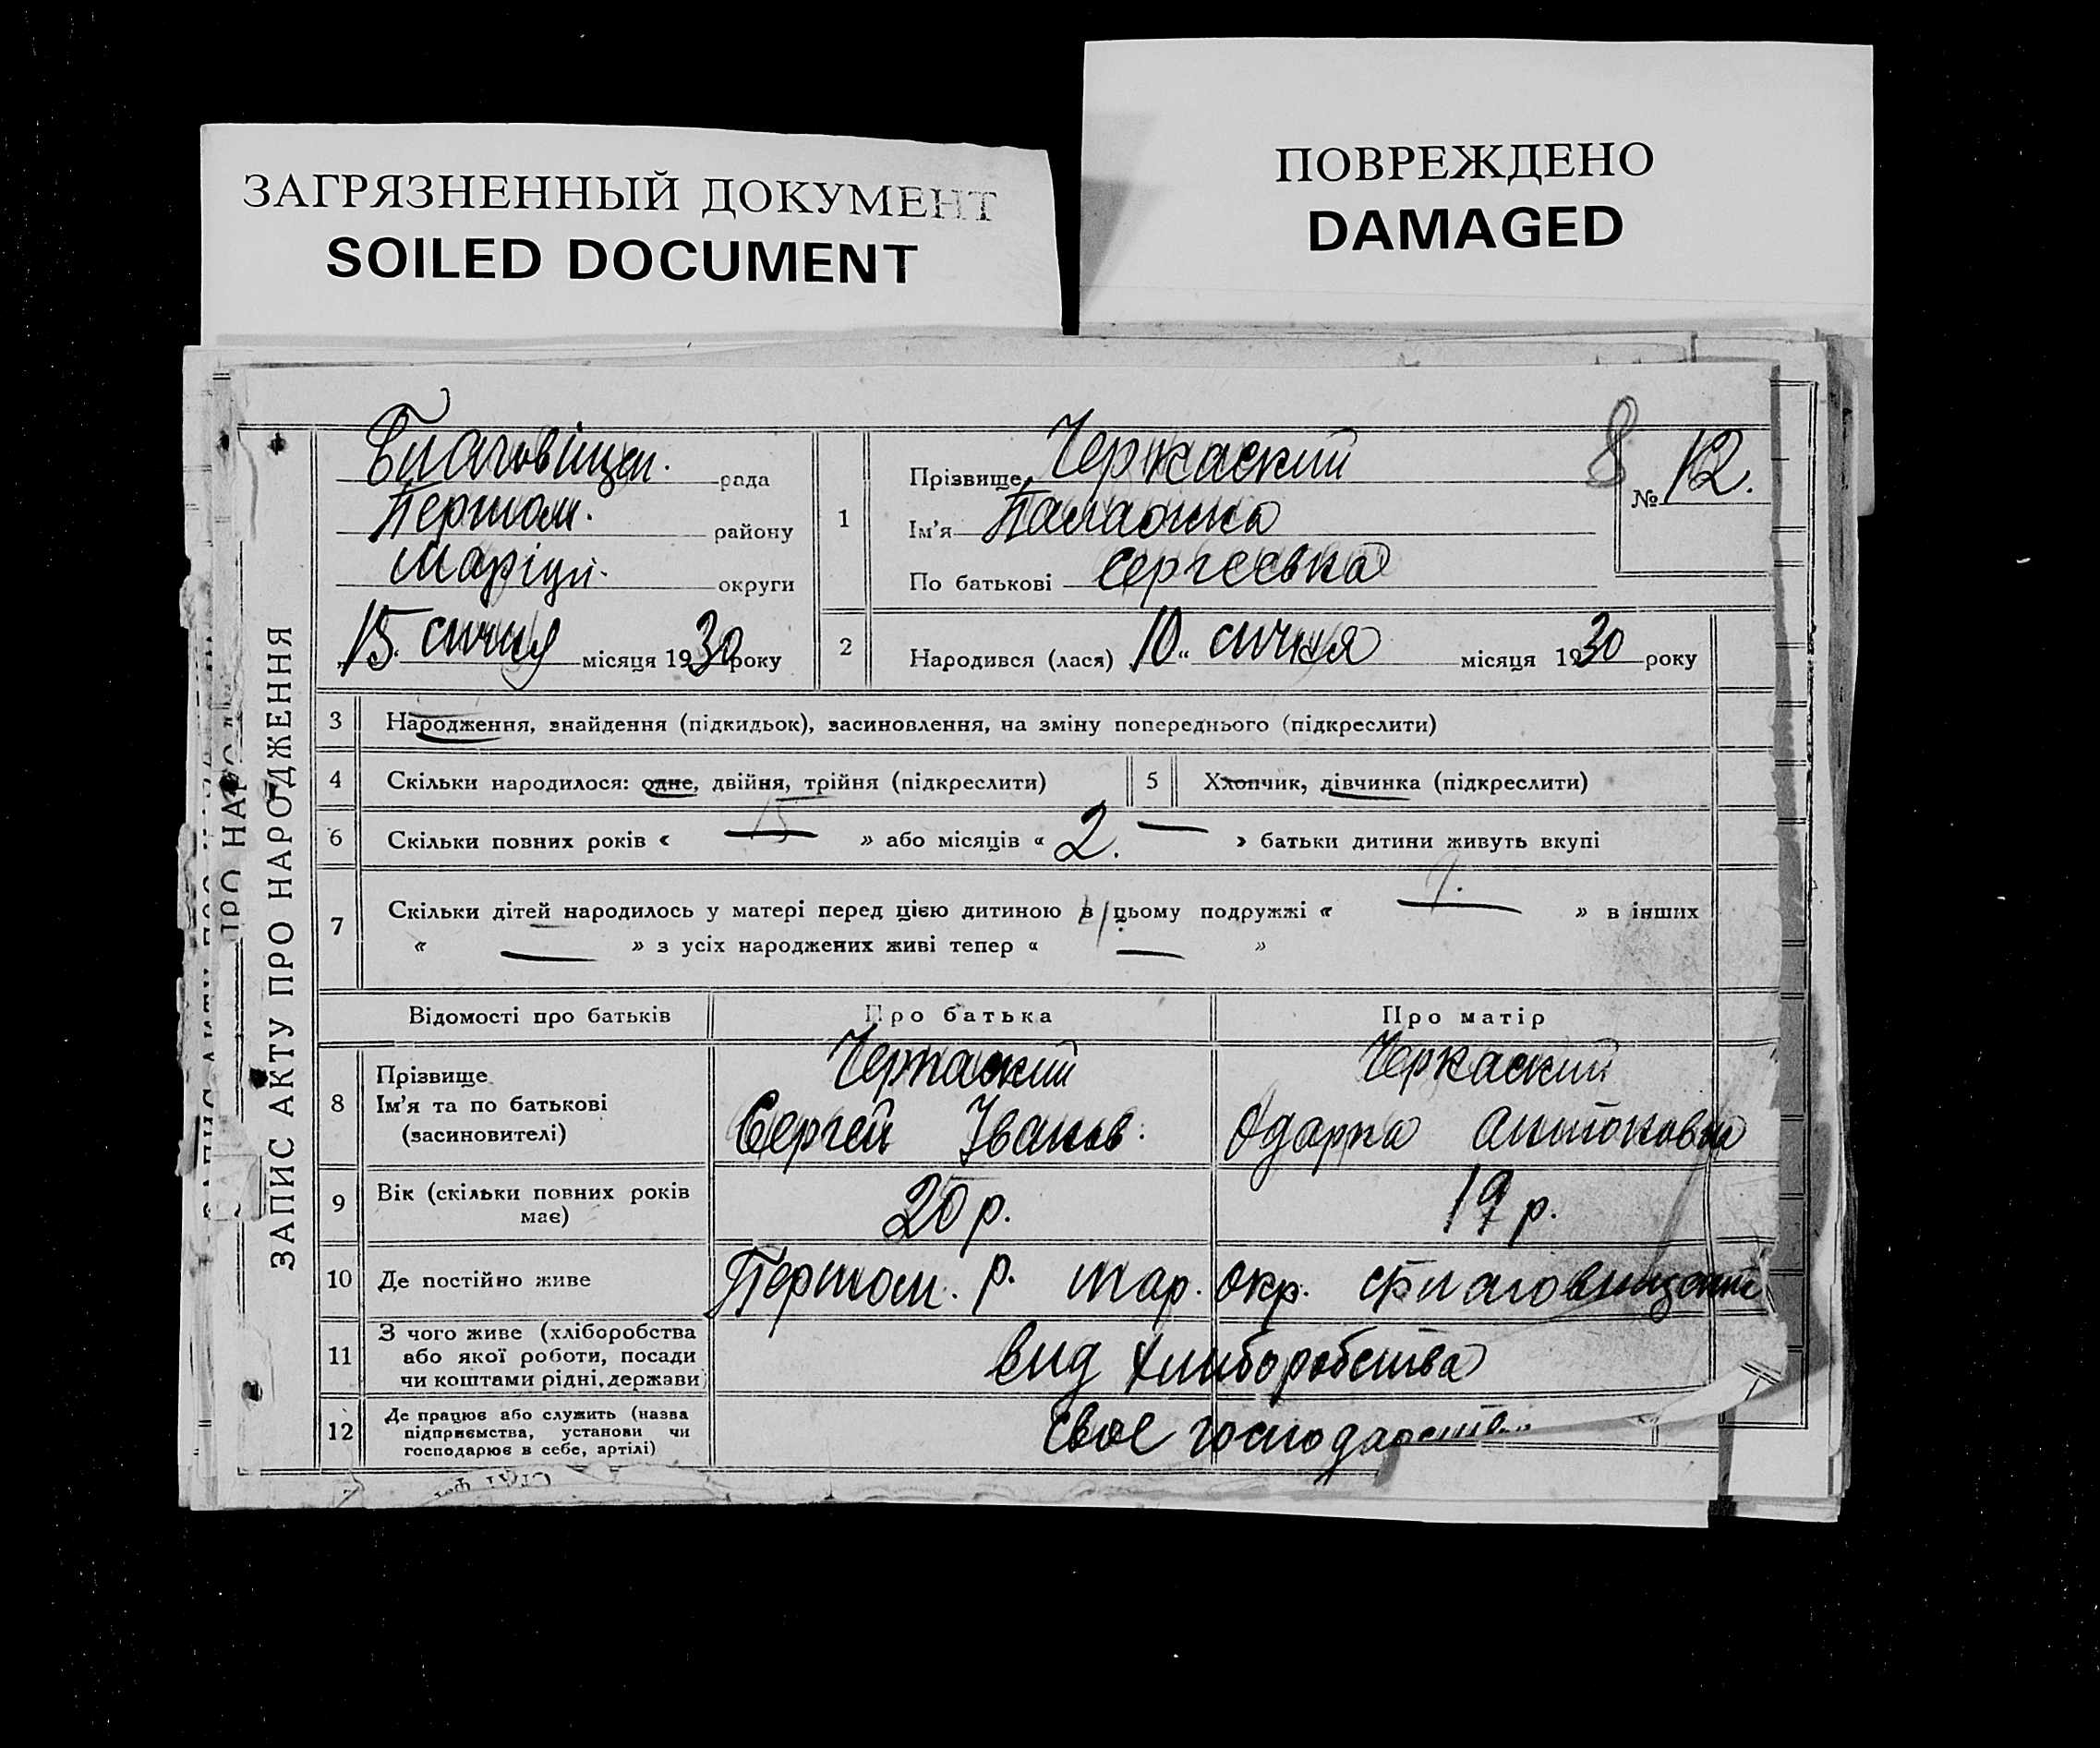 ЗАГРЯЗНЕННЫЙ ДОКУМЕНТ
SOILED DOCUMENT
ПОВРЕЖДЕНО
DAMAGED
ЗАПИС АКТУ ПРО НАРОДЖЕННЯ
Благовіщен. рада
Першом. району
Маріуп. округи
15. сичня місяця 1930 року
1
Прізвище Черкаский
Ім'я Палашка
По батькові Сергеевна
8
№ 12.
2
Народився (лася) 10 сичня місяця 1930 року
3 Народження, знайдення (підкидьок), засиновлення, на зміну попереднього (підкреслити)
4 Скільки народилося: одне, двійня, трійня (підкреслити)
5 Хлопчик, дівчинка (підкреслити)
6 Скільки повних років « — » або місяців « 2. — » батьки дитини живуть вкупі
7 Скільки дітей народилось у матері перед цією дитиною в цьому подружжі « — » в інших
« — » з усіх народжених живі тепер « — »
Відомості про батьків
Про батька
Про матір
8
Прізвище
Ім'я та по батькові
(засиновителі)
Черкаский
Сергей Іванов.
Черкаский
Одарка Антоновна
9
Вік (скільки повних років
має)
20 р.
19 р.
10 Де постійно живе
Першом. р. мар. окр.
11
З чого живе (хліборобства
або якої роботи, посади
чи коштами рідні, держави)
вид хлиборобства
12
Де працює або служить (назва
підприємства, установи чи
господарює в себе, артілі)
свое господарство